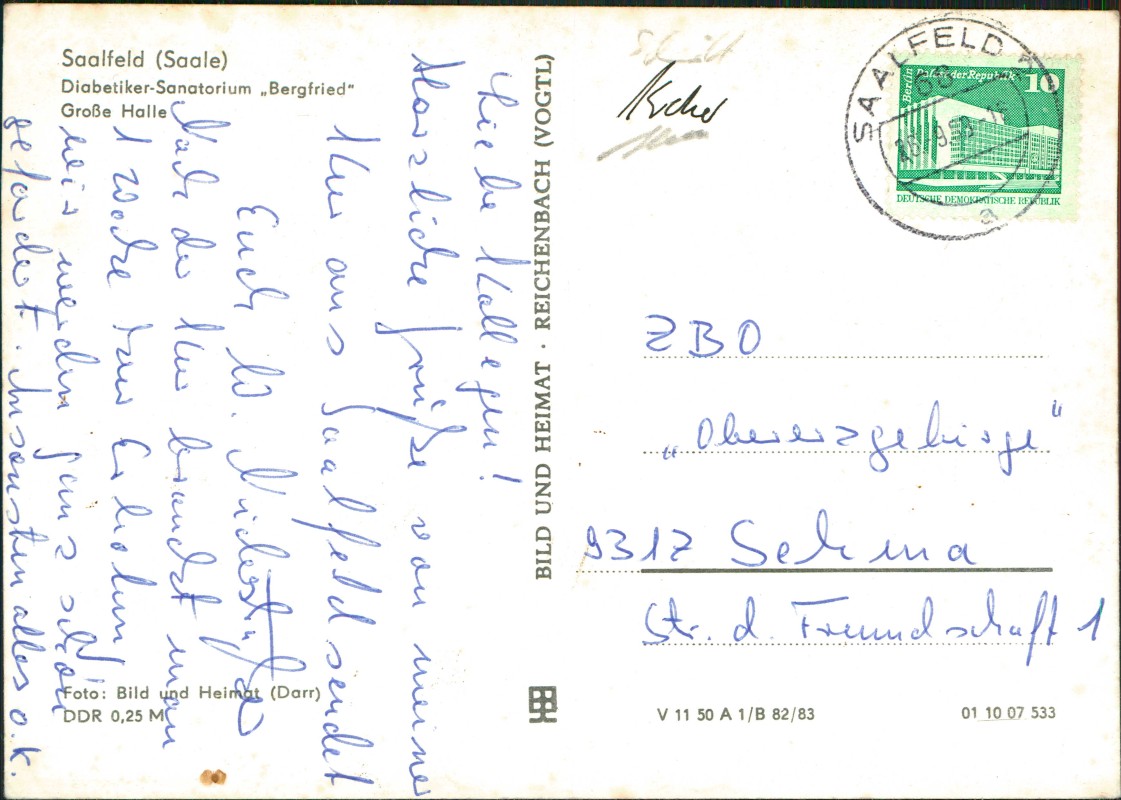 Saalfeld (Saale)
Diabetiker-Sanatorium „Bergfried"
Große Halle
Liebe Kollegen!
Herzliche Grüße von meiner
Kur aus Saalfeld sendet
Euch
Nach der Kur braucht man
1 Woche zur Erholung
wir werden ganz schön
gefordert. Ansonsten alles o.k.
Foto: Bild und Heimat (Darr)
DDR 0,25 M
BILD UND HEIMAT · REICHENBACH (VOGTL)
SAALFELD
Berlin Palast der Republik 10
DEUTSCHE DEMOKRATISCHE REPUBLIK
a
ZBO
„Obererzgebirge"
9317 Sehma
Str. d. Freundschaft 1
V 11 50 A 1/B 82/83
01 10 07 533